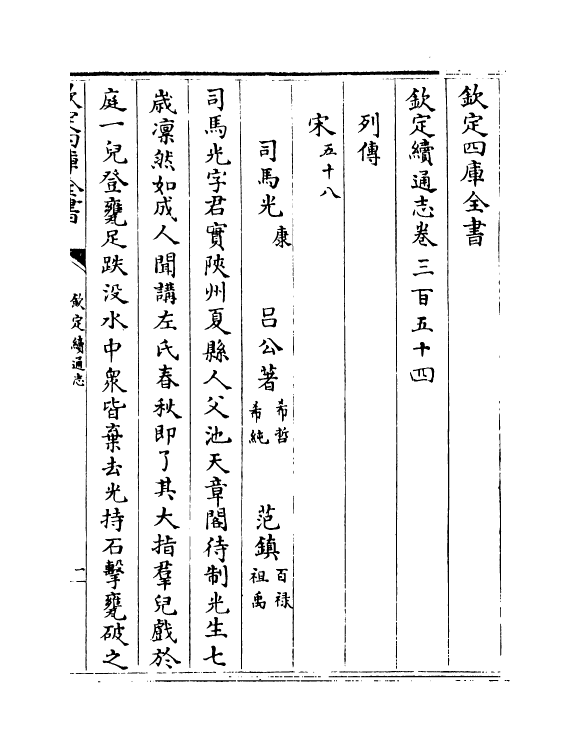 欽定四庫全書
欽定續通志卷三百五十四
列傳
宋五十八
司馬光康　呂公著希哲希純　范鎮百祿祖禹
司馬光字君實陜州夏縣人父池天章閣待制光生七
歳凛然如成人聞講左氏春秋即了其大指羣兒戲於
庭一兒登甕足跌没水中衆皆棄去光持石擊甕破之
欽定四庫全書
欽定續通志
一